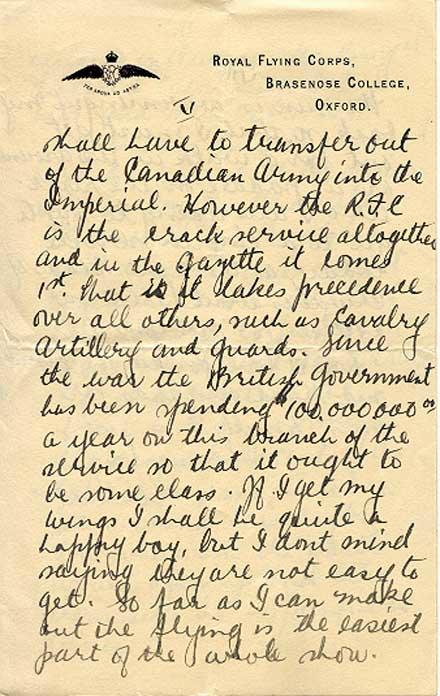 PER ARDUA AD ASTRA
ROYAL FLYING CORPS,
BRASENOSE COLLEGE,
OXFORD.
V
shall have to transfer out
of the Canadian Army into the
Imperial. However the R.F.C
is the crack service altogether
and in the gazette it comes
1st. that is it takes precedence
over all others, such as Cavalry
Artillery and guards. Since
the war the British government
has been spending $100,000,000 00
a year on this branch of the
service so that it ought to
be some class. If I get my
wings I shall be quite a
happy boy, but I dont mind
saying they are not easy to
get. So far as I can make
out the flying is the easiest
part of the whole show.